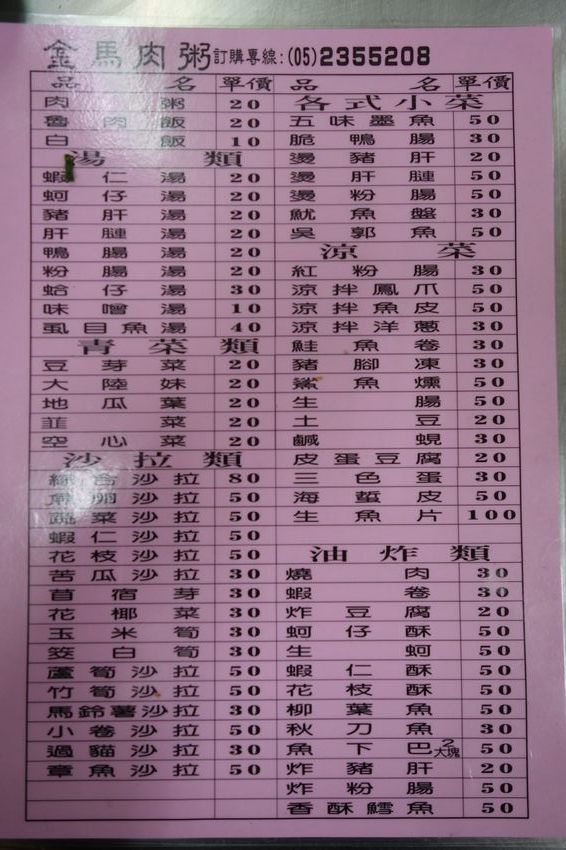 金馬肉粥訂購專線:(05)2355208
品名 單價
肉粥 20
魯肉飯 20
白飯 10
湯類
蝦仁湯 20
蚵仔湯 20
豬肝湯 20
肝腱湯 20
鴨腸湯 20
粉腸湯 20
蛤仔湯 30
味噌湯 10
虱目魚湯 40
青菜類
豆芽菜 20
大陸妹 20
地瓜葉 20
韮菜 20
空心菜 20
沙拉類
綜合沙拉 80
魚卵沙拉 50
蔬菜沙拉 50
蝦仁沙拉 50
花枝沙拉 50
苦瓜沙拉 30
苜宿芽 30
花椰菜 30
玉米筍 30
筊白筍 30
蘆筍沙拉 50
竹筍沙拉 50
馬鈴薯沙拉 30
小卷沙拉 50
過貓沙拉 30
章魚沙拉 50
品名 單價
各式小菜
五味墨魚 50
脆鴨腸 30
燙豬肝 20
燙肝腱 50
燙粉腸 50
魷魚螺 30
吳郭魚 50
涼菜
紅粉腸 30
涼拌鳳爪 50
涼拌魚皮 50
涼拌洋蔥 30
鮭魚卷 30
豬腳凍 30
鯊魚燻 50
生腸 50
土豆 20
鹹蜆 30
皮蛋豆腐 20
三色蛋 30
海蜇皮 50
生魚片 100
油炸類
燒肉 30
蝦卷 30
炸豆腐 20
蚵仔酥 50
生蚵 50
蝦仁酥 50
花枝酥 50
柳葉魚 50
秋刀魚 30
魚下巴2大塊 50
炸豬肝 20
炸粉腸 50
香酥鱈魚 50